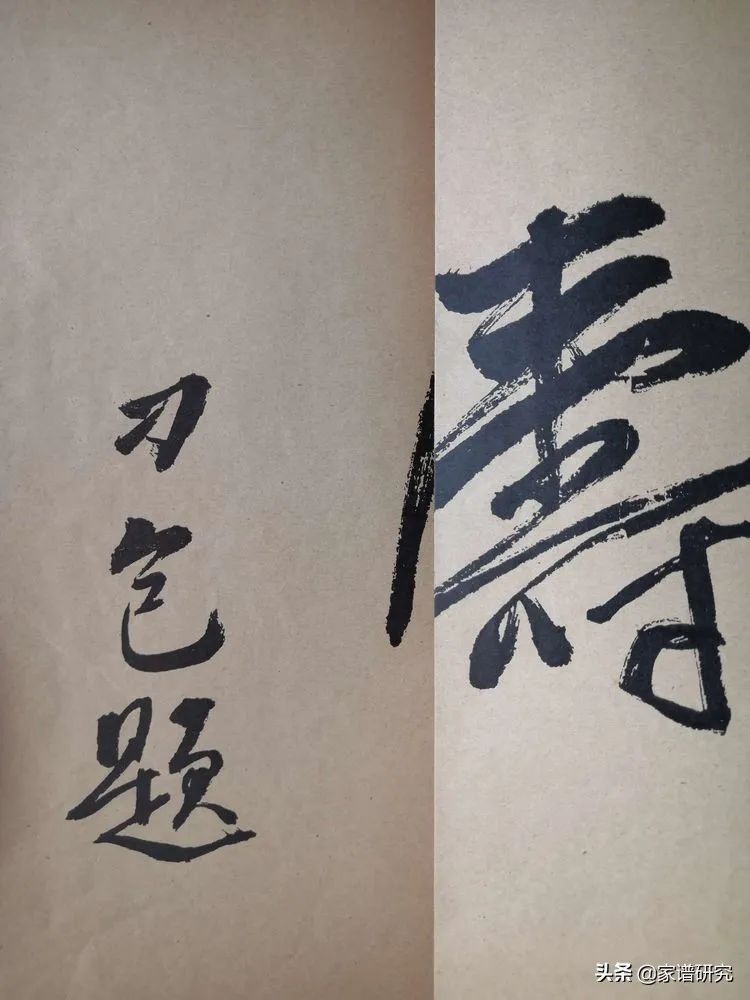 壽
刁包題
头条 @家谱研究